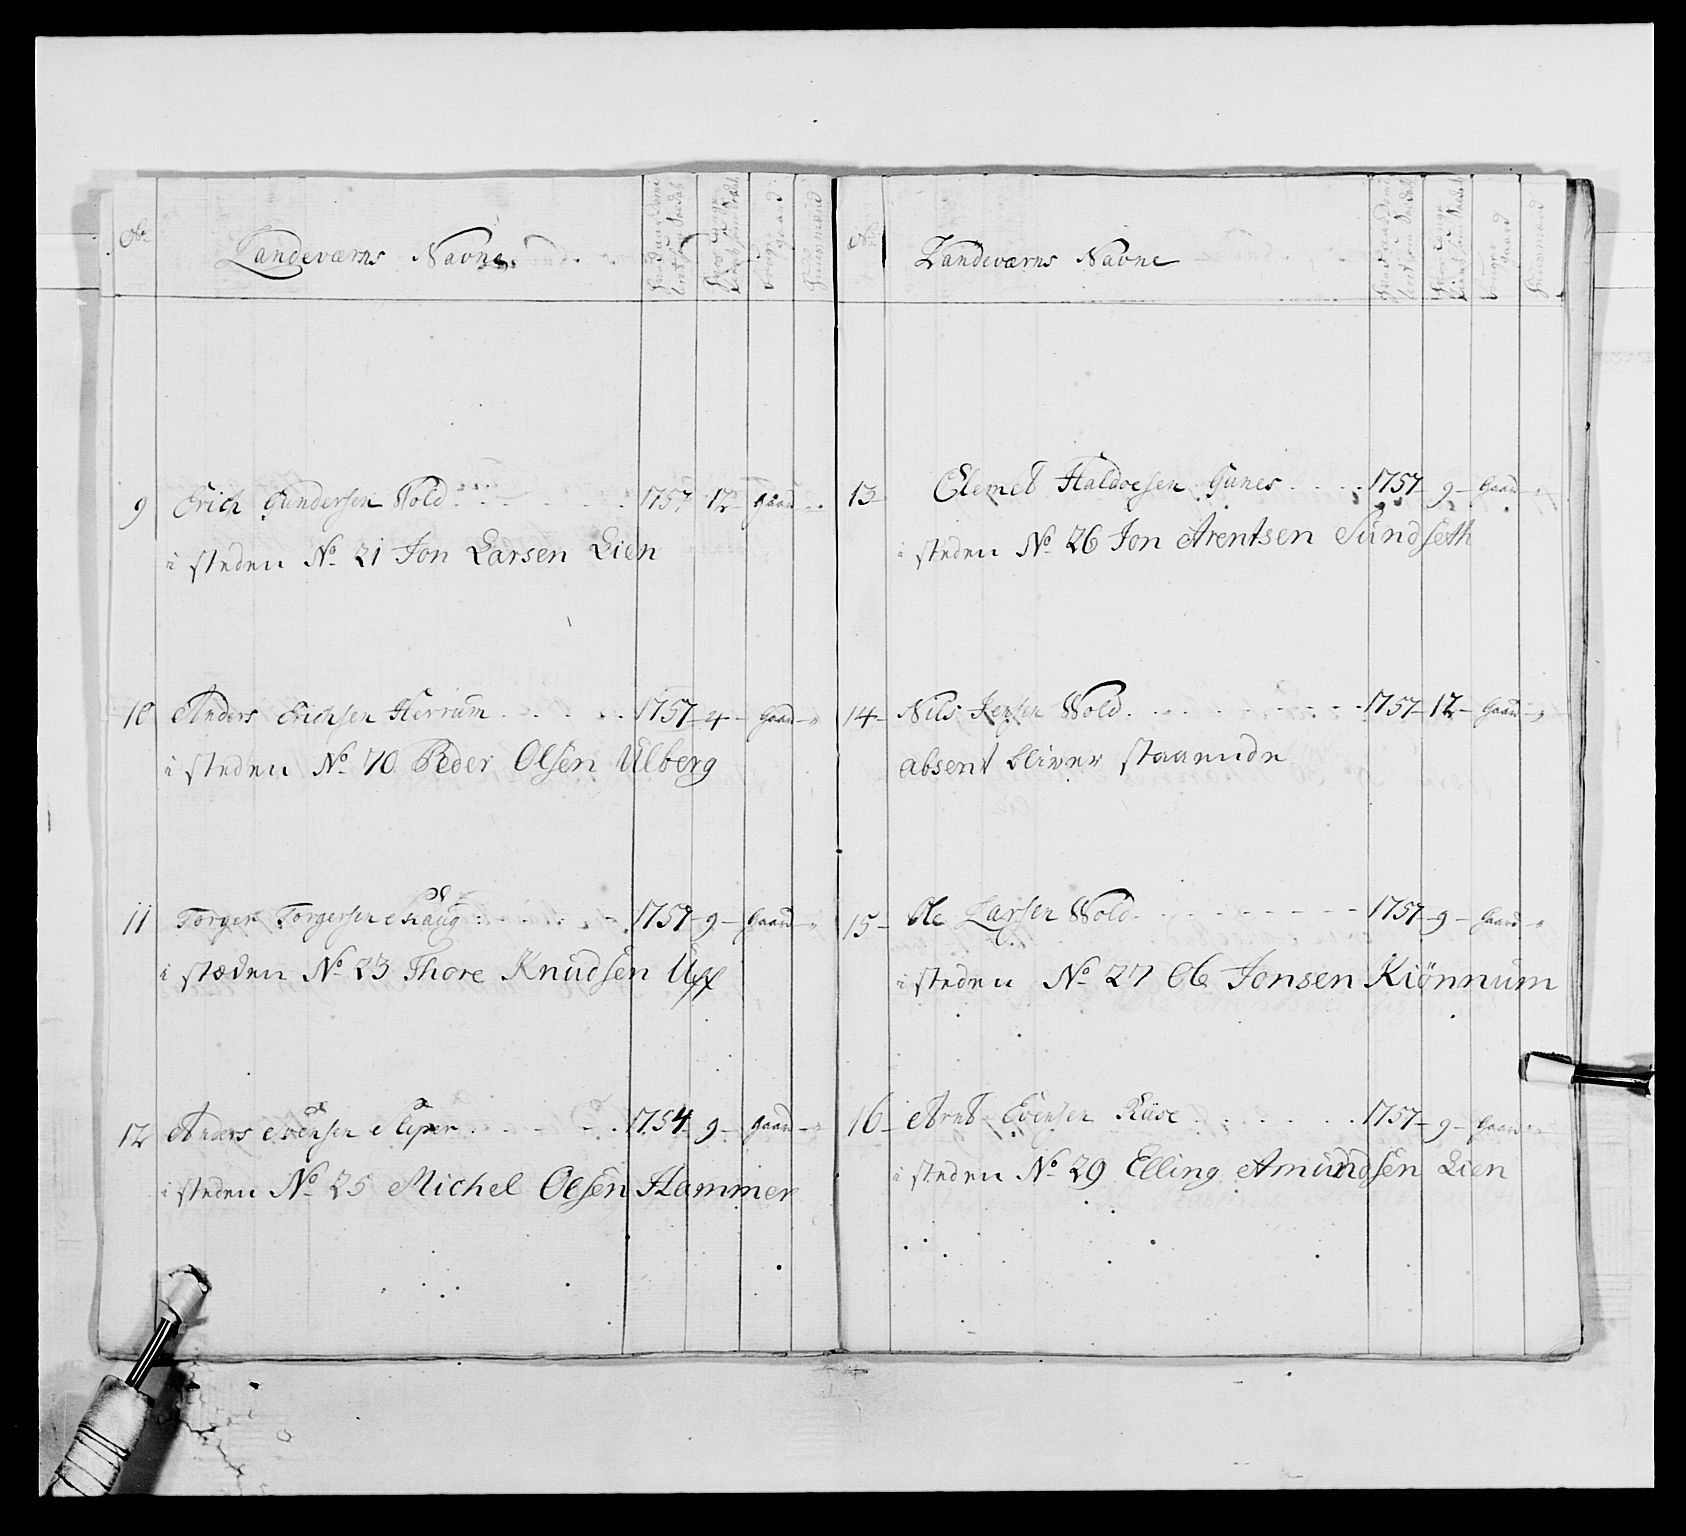 No
Landeværns Navne
9 Erich Gundersen Wold 1757 12 Gaard
i steden No 21 Jon Larsen Lien
10 Anders Erichsen Herrum 1757 4 Gaard
i steden No 70 Peder Olsen Ulberg
11 Torger Torgersen Haug 1757 9 Gaard
i stæden No 23 Thore Knudsen Uff
12 Anders Evensen Sliper 1754 9 Gaard
i steden No 25 Michel Olsen Hammer
No
Landeværns Navne
13 Clemet Haldoesen Gunes 1757 9 Gaard
i steden No 26 Jon Arentsen Sundseth
14 Nils Jensen Wold 1757 12 Gaard
absent bliver staaende
15 Ole Larsen Wold 1757 9 Gaard
i steden No 27 Ole Jonsen Kiönnum
16 Arnt Evensen Riise 1757 9 Gaard
i steden No 29 Elling Amundsen Lien